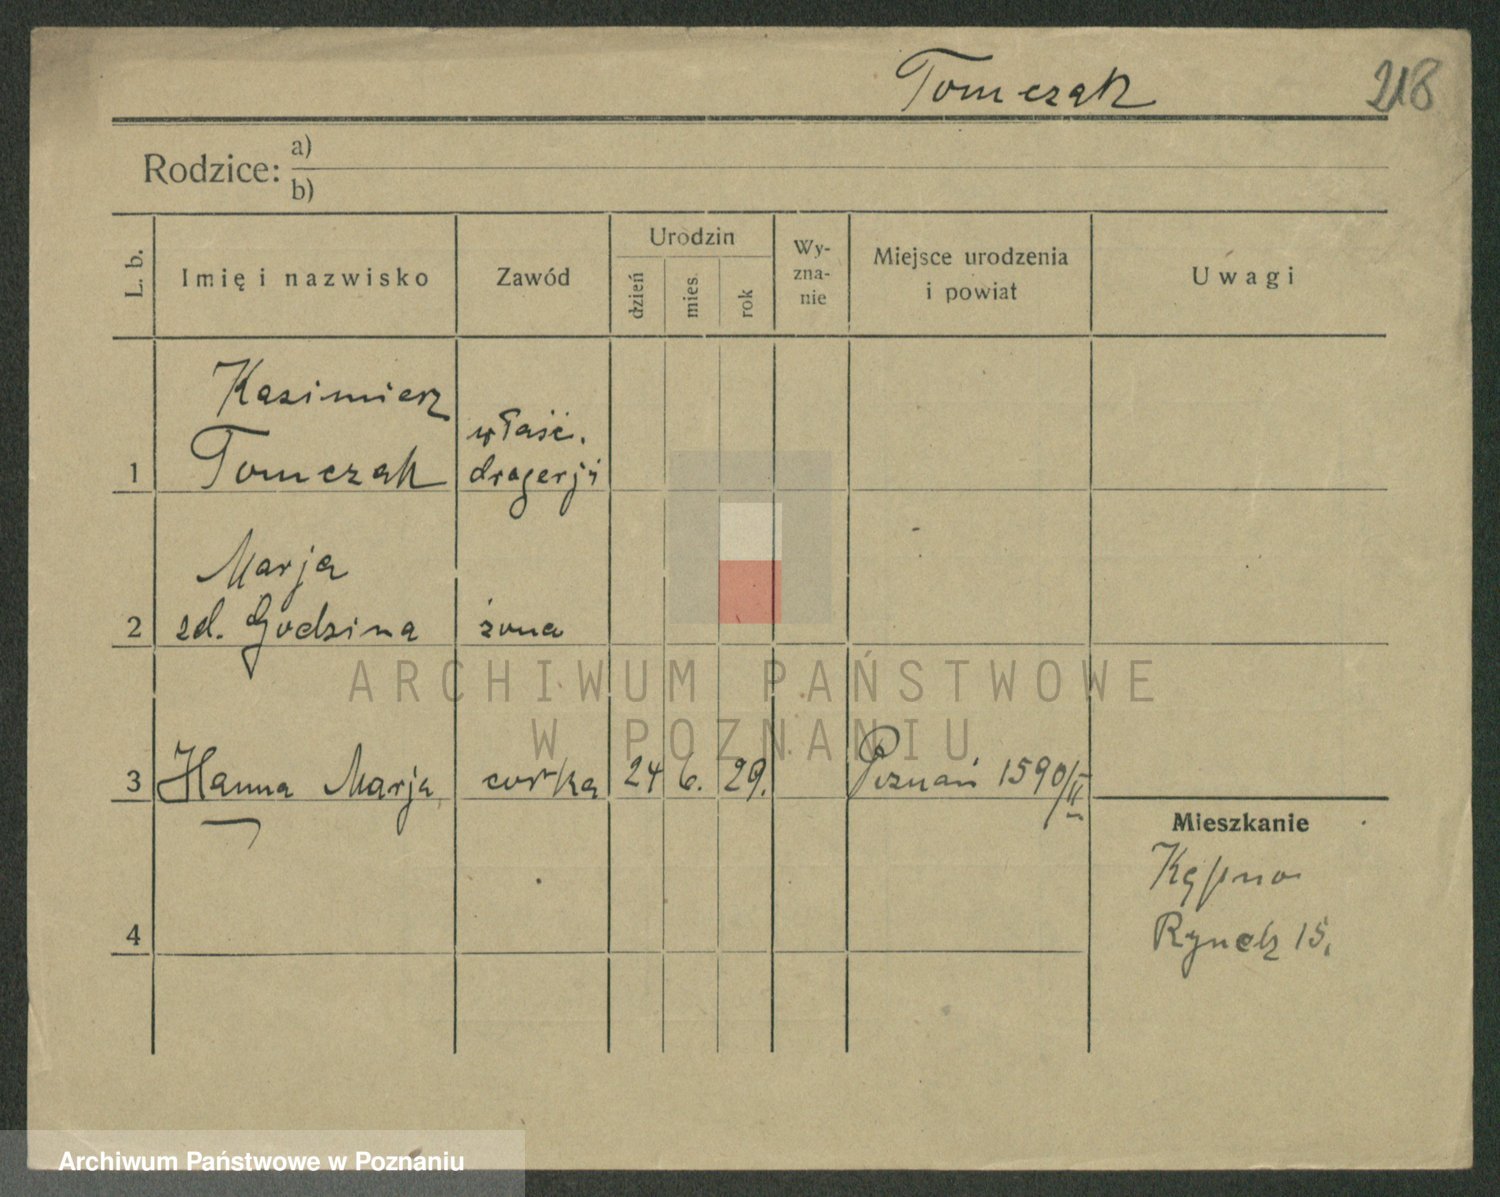 Tomczak
218
Rodzice: a)
b)
L. b.
Imię i nazwisko
Zawód
Urodzin
dzień
mies.
rok
Wy-
zna-
nie
Miejsce urodzenia
i powiat
Uwagi
1
Kazimierz
Tomczak
właśc.
drogerji
2
Marja
zd. Godzina
żona
3
Hanna Marja
córka
24
6.
29.
Poznań 1590/II
4
Mieszkanie
Kępno
Rynek 15.
ARCHIWUM PAŃSTWOWE
W POZNANIU
Archiwum Państwowe w Poznaniu